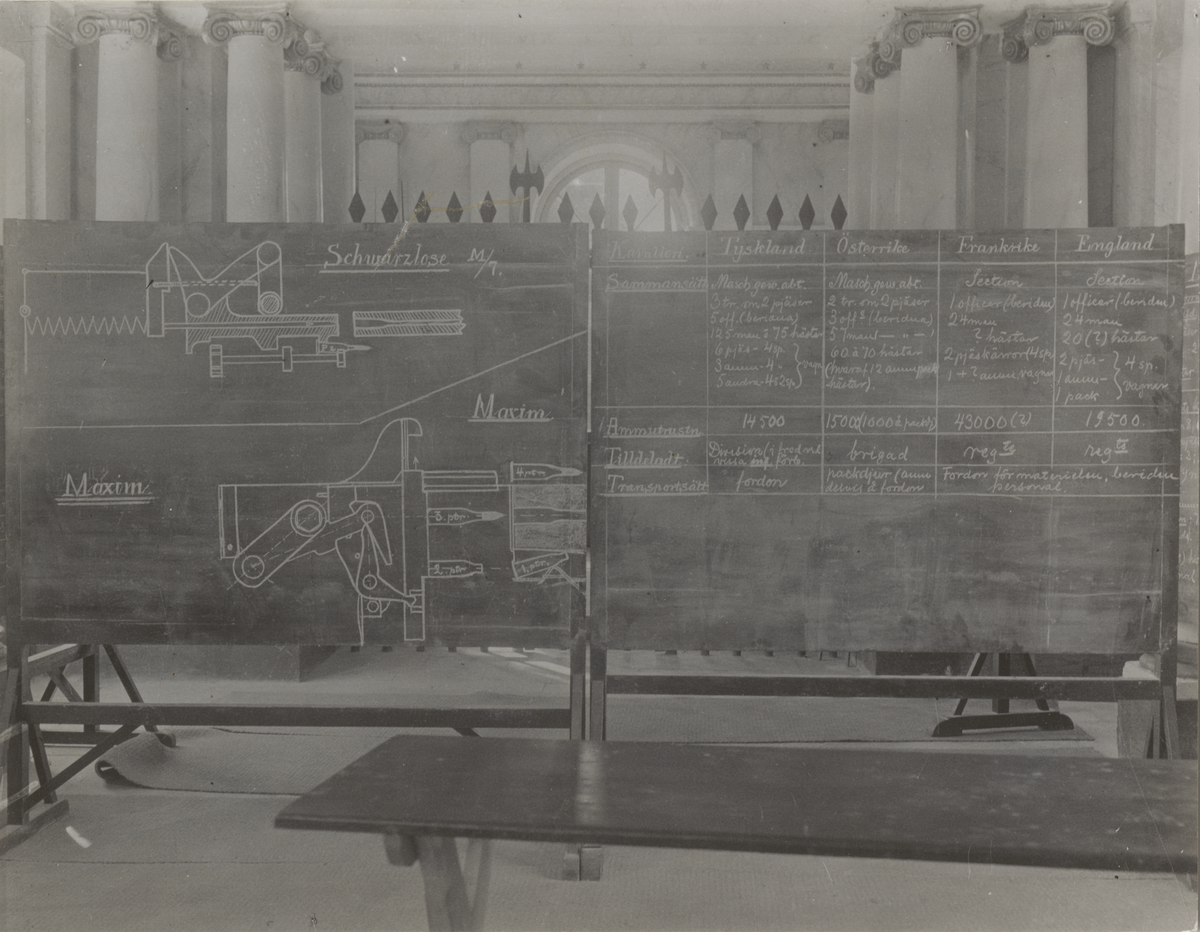 Schwarzlose M/7.
Maxim
Maxim
4 pom
3. ptr.
2. ptr.
1. ptr.
Tyskland Österrike Frankrike England
Sammansätt Masch. gew. abt. Masch. gew. abt. Section Section
3 tr. om 2 pjäser 2 tr. om 2 pjäser 1 officer (beriden) 1 officer (beriden)
5 off. (beridna) 3 off s (beridna) 24 man 24 man
125 man à 75 hästar 57 man — " — ? hästar 20 (?) hästar
6 pjäs- 4 sp. 60 à 70 hästar 2 pjäskärror (4 sp. 2 pjäs- 4 sp.
3 amm- 4 " vagn (hvaraf 12 ammpack 1 + ? amm. vagnar 1 amm- vagnar
hästar). 1 pack
14500 1500 (1000 à pack) 43000 (?) 19500
Tilldeladt Division brigad reg ts reg ts
Transportsätt fordon packdjur (amm Fordon för materielen, beriden
delvis å fordon personal.